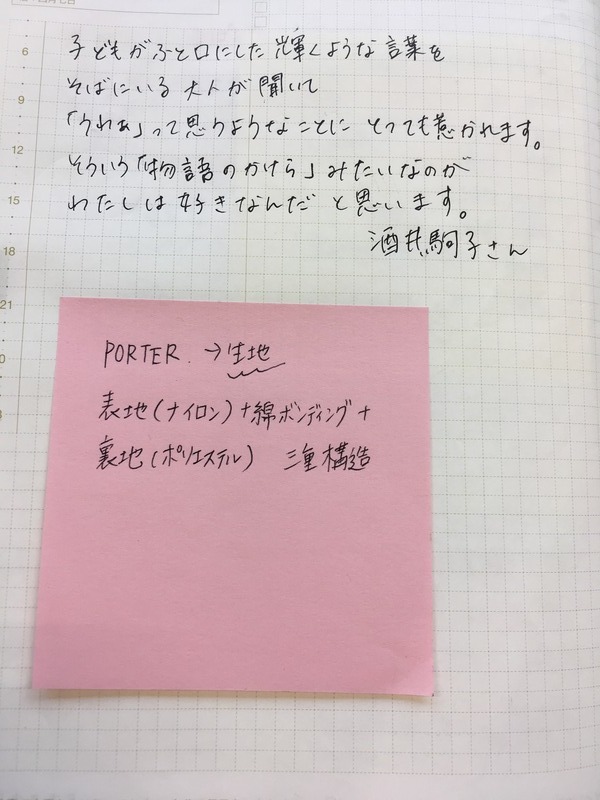 子どもがふと口にした輝くような言葉を
6
そばにいる大人が聞いて
9
「うわぁ」って思うようなことにとっても惹かれます。
12
そういう「物語のかけら」みたいなのが
15
わたしは好きなんだと思います。
18
酒井駒子さん
21
PORTER. →生地
表地(ナイロン)+綿ボンディング+
裏地(ポリエステル) 三重構造